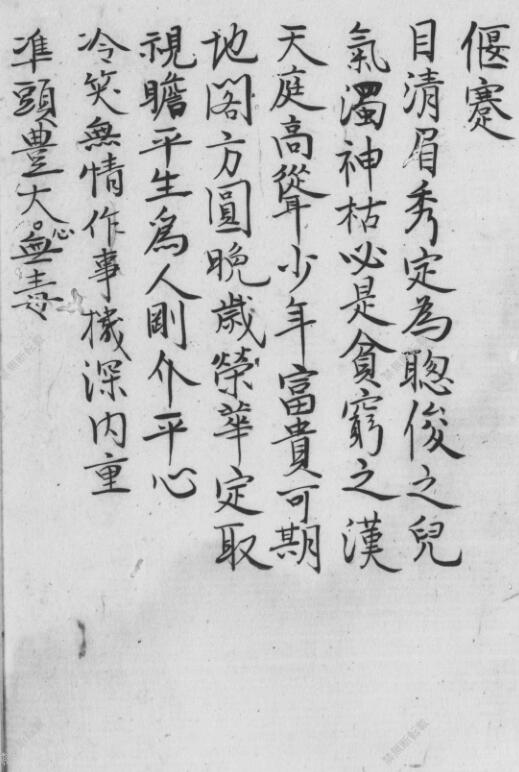 偃蹇
目清眉秀定為聰俊之兒
氣濁神枯必是貧窮之漢
天庭高聳少年富貴可期
地閣方圓晚歲榮華定取
視瞻平生為人剛介平心
冷笑無情作事機深内重
準頭豊大心無毒